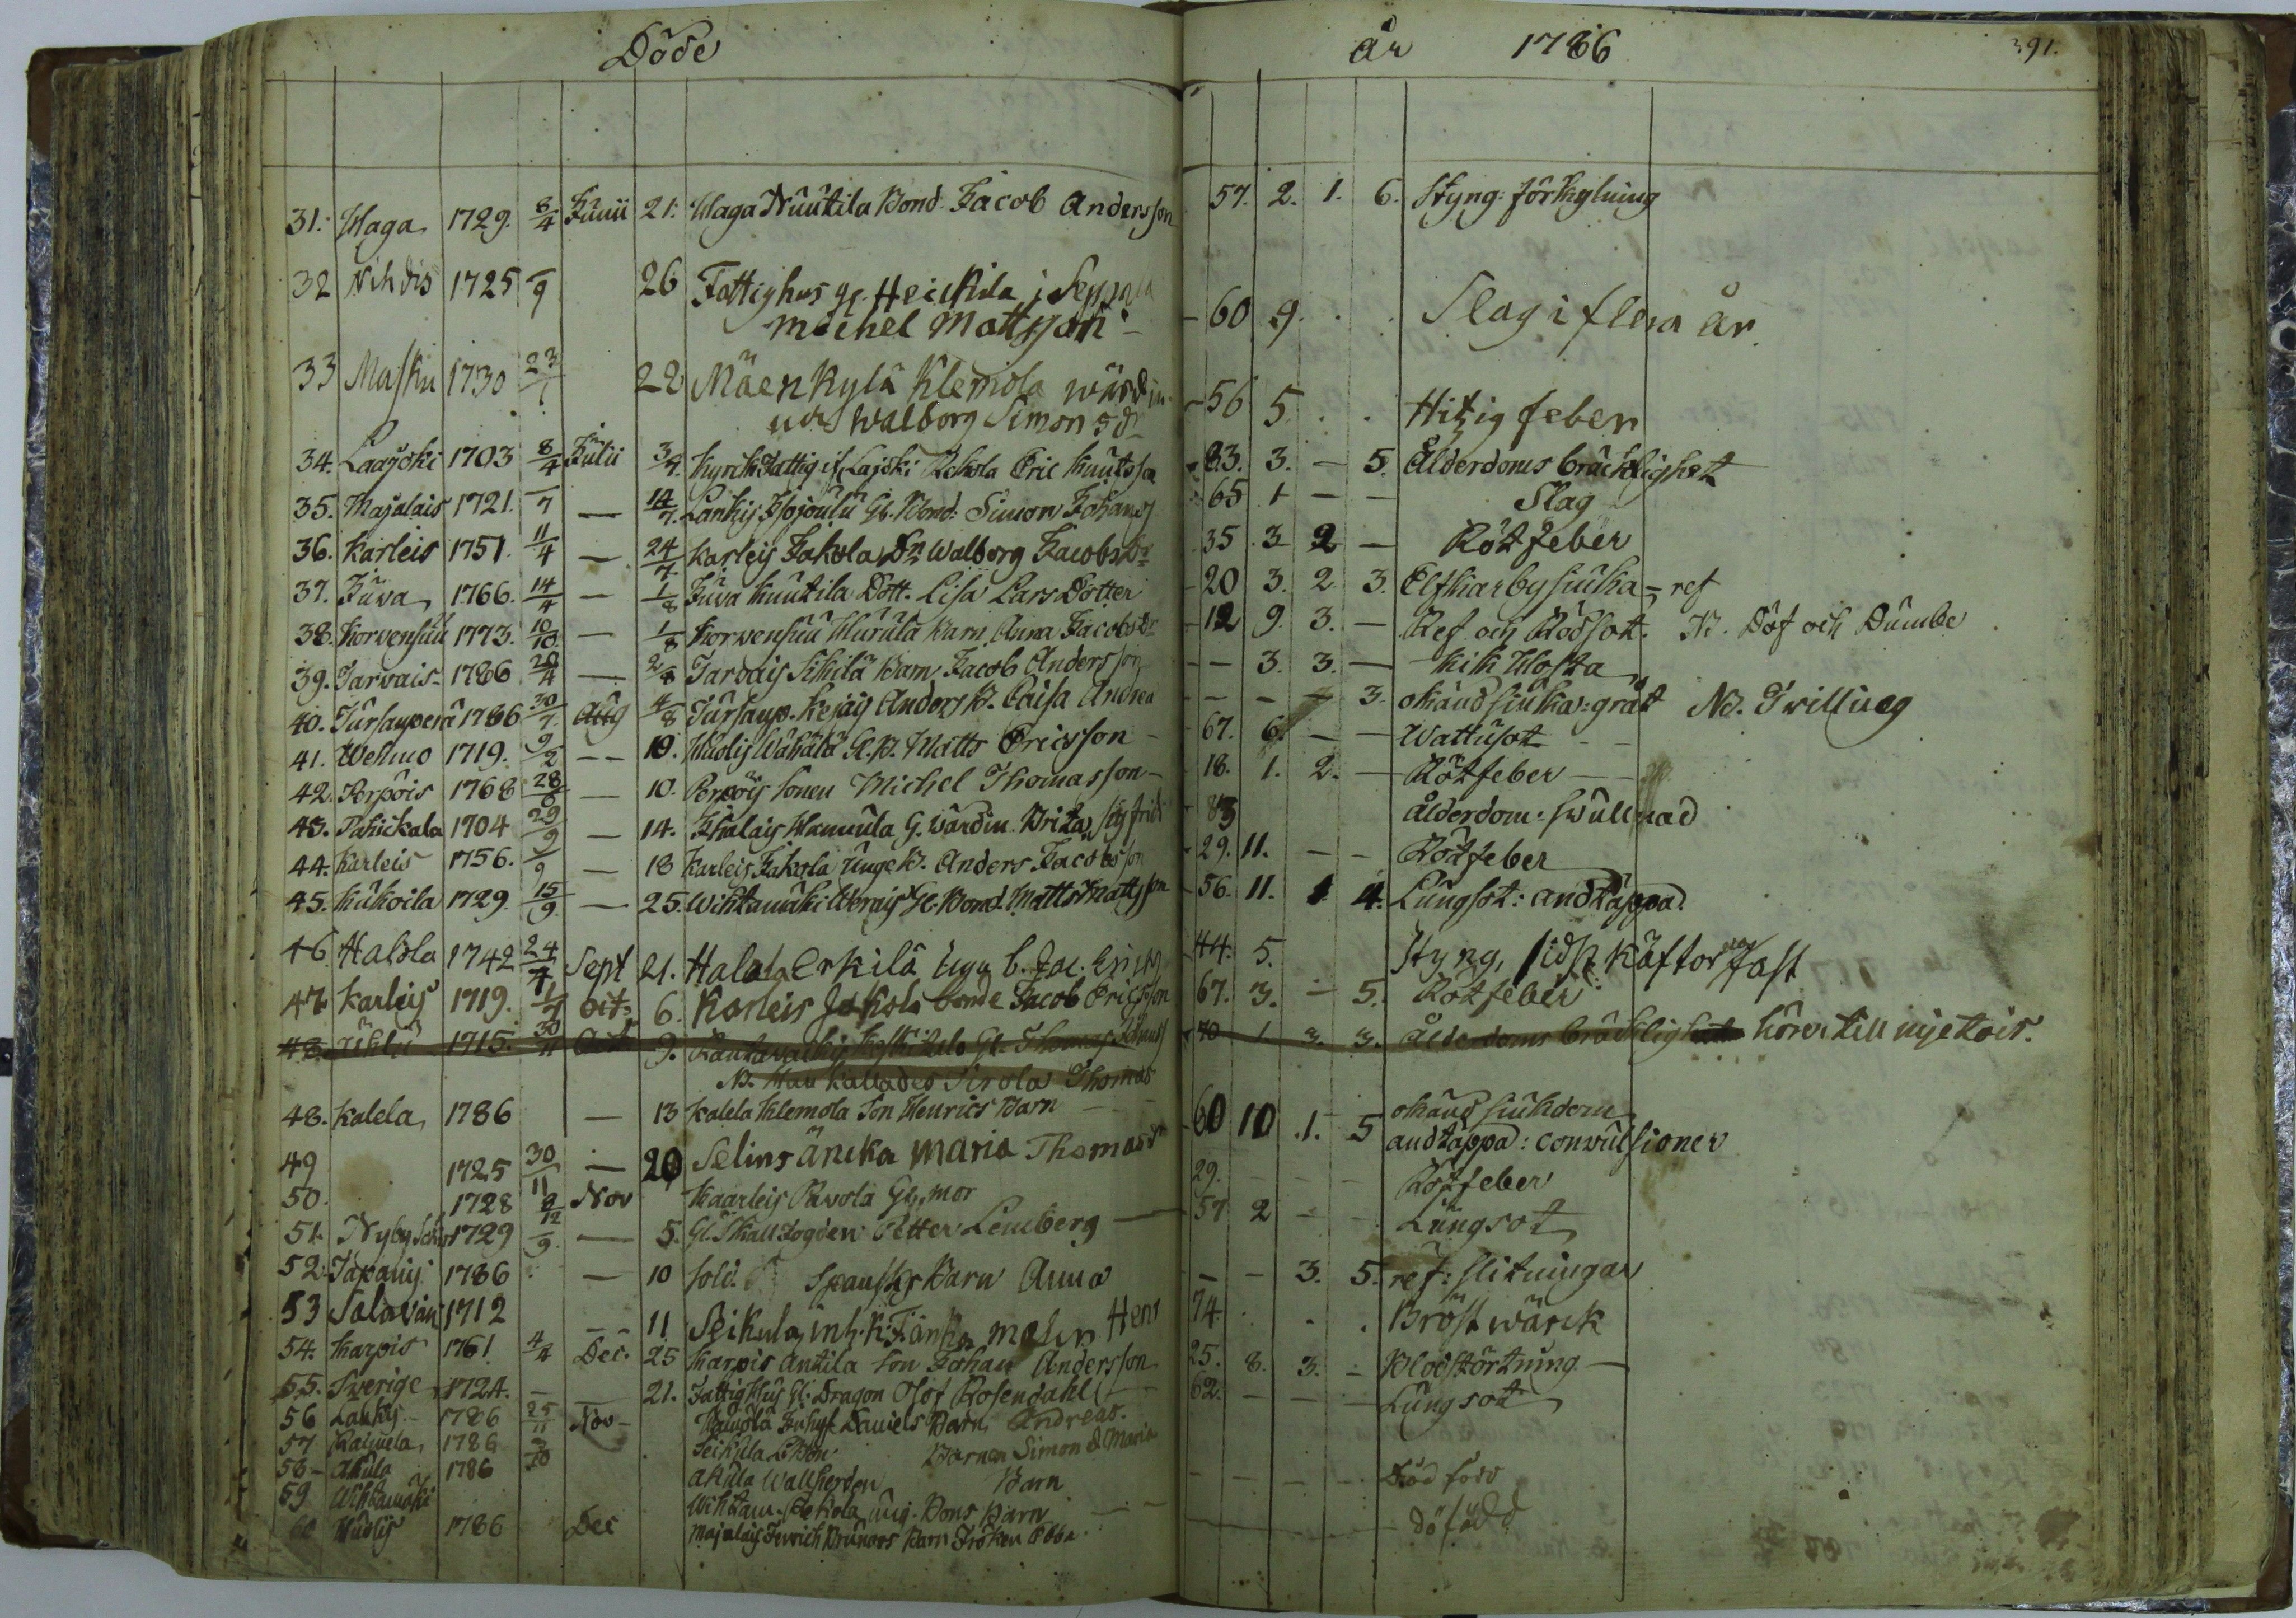 Döde år 1786 391.
31. Haga 1729. 8/4 Junii 21. Haga Nuutila Bond. Jacob Andersson 57. 2. 1. 6. Styng: förkylning
32 Nihdis 1725 /9 26 Fattighus gl. Heickila i
Michel Mattsson 60 9. Slag i flera år.
33 Masku 1730 23/1 22 Mäenkylä Klemola wärdin
Walborg Simonsd 56 5. Hitzig feber
34. Laajoki 1703 8/4 Julii 3/7. Lajoki Eric Knutsson 83. 3. — 5. Ålderdoms bräcklighet
35. Majalais 1721. /7 — 14/7. Lankis Isojoulu Gl. Bond: Simon Johans 65 1 — — Slag
36. Karleis 1751. 11/4 — 24/7 Karleis Jakola Walborg Jacobs Dr 35 3 2 — Rötfeber
37. Juva 1766. 14/4 — 1/8 Juva Kuutila Dott. Lisa Lars Dotter 20 3. 2. 3. Elfkarbysiuka = ref
38. Korvensuu 1773. 10/10. — 1/8 Korvensuu Hurula Barn Anna Jacobs Dr 12 9. 3. — Ref och Rödsot. N. Döf och Dumbe
39. Tarvais 1786 20/4 — 2/8 Tarvais Sikilä Barn Jacob Andersson — 3. 3. — Kik Hosta
40. Tursunperä 1786 30/7. Aug 4/8 Tursunp. Kejais Anders B. Caisa Andrea — — — 3. okänd siuka: gråt NB. Trilling
41. Wehmo 1719. 9/2 — 10. Hudis Wähälä Gl. B. Matts Ericsson 67. 6 — — Wattusot
42. Perpöis 1768 28/8 — 10. Perpöis Sonen Michel Thomasson 18. 1. 2. — Rötfeber
43. Pahickala 1704 29/9 — 14. Ihalais Hannula G. Wärdin Brita Sigfrids 83 ålderdom: swullnad
44. Karleis 1756. /9 — 18 Karleis Jakola unge B. Anders Jacobsson 29. 11. — — Rötfeber
45. Kukoila 1729. 15/9. — 25. Wihtamäki Gl. Bond. Matts Mattsson 56. 11. 1 4. Lungsot: andtäppa
46 Halola 1742 24/7 Sept 21. Halola Erkilä ung b. Jac. Ericss 44. 5. Styng, sidst käftorna fast
47. Karleis 1719. 1/7 Oct. 6. Karleis Jakola bonde Jacob Ericsson 67. 3. — 5. Rötfeber
1715. 30/11 Oct 9. Gl. Thomas 70 1. 3. 3. Ålderdoms bräcklighet hörer till
NB. Han kallades Sirola Thomas
48. Kalela 1786 — 13 Kalela Klemola Son Henrics Barn okänd siukdom
49 1725 30/11 — 20 Selins äncka Maria Thomasdr 60 10 1. 5 andtäppa: convulsioner
50. 1728 9/12 Nov Kaarleis Pavola Gl. mor 29. — — — Rötfeber
51. Nyby 1729 /9 — 5. Gl. Skallfogden Petter Lemberg 57 2 — — Lungsot
52. Tapanis 1786 — 10 Sold. Spansks Barn Anna — — 3. 5. ref: slitningar
53 Salovain 1712 — 11 Seikula inh. k. Fänka Malin Henr 74. Bröstwärck
54. Karpis 1761 4/4 Dec. 25 Karpis Antila Son Johan Andersson 25. 8. 3. — Blodstörtning
55. Sverige 1724. — 21. Fattighus Gl. Dragon Olof Rosendahl 62. — — — Lungsot
56 Lankis 1786 25/11 Nov Daniels Barn Andreas.
57 1786 /10 Seikula Barnen Simon & Maria
58 Akula 1786 Akula Wallherden Barn Död född
59 Wihtamäki Wihtam. Pekola ung. Bons Barn död född
60 Hudis 1786 Dec Majalais Barn Fröken Ebba